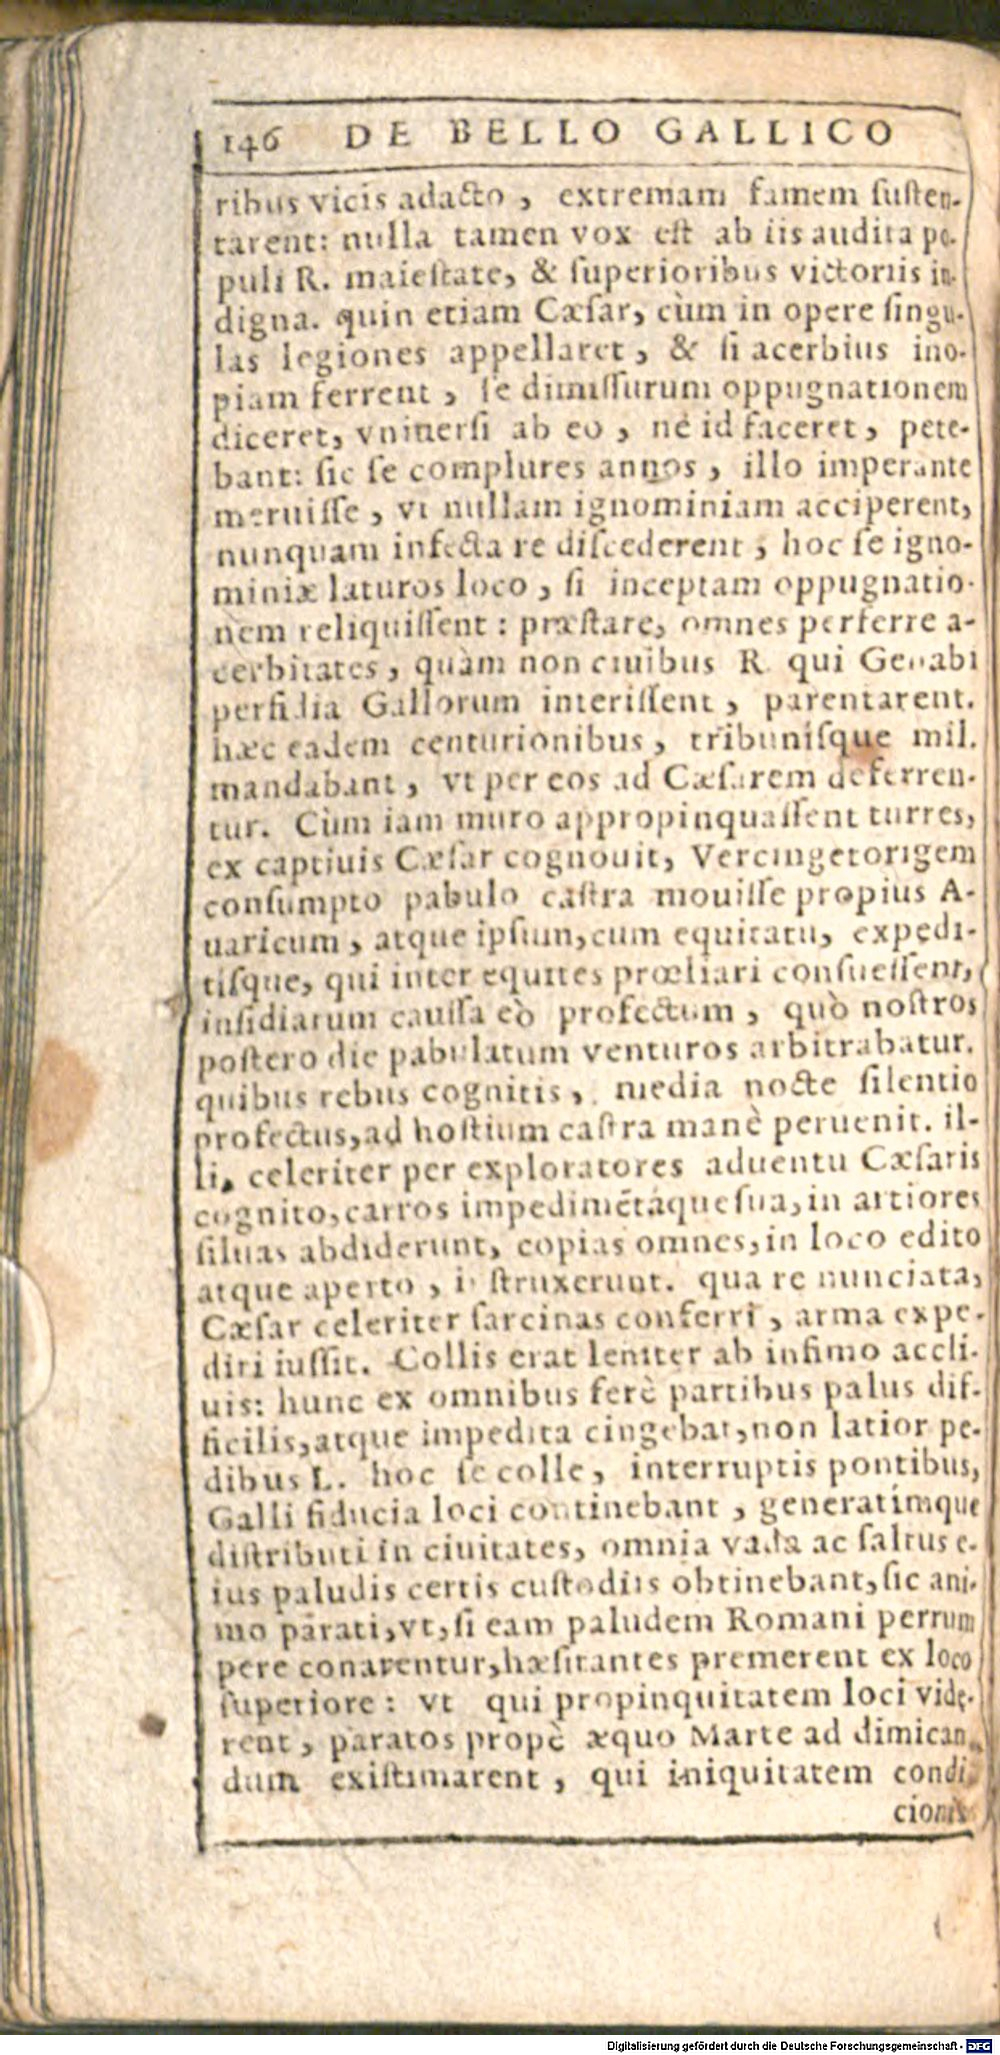 146 DE BELLO GALLICO
ribus vicis adacto, extremam famem ſuſten-
tarent: nulla tamen vox eſt ab iis audita po-
puli R. maieſtate, & ſuperioribus victoriis in-
digna. quin etiam Cæſar, cùm in opere ſingu-
las legiones appellaret, & ſi acerbius ino-
piam ferrent, ſe dimiſſurum oppugnationem
diceret, vniuerſi ab eo, ne id faceret, pete-
bant: ſic ſe complures annos, illo imperante
meruiſſe, vt nullam ignominiam acciperent,
nunquam infecta re diſcederent, hoc ſe igno-
miniæ laturos loco, ſi inceptam oppugnatio-
nem reliquiſſent: præſtare, omnes perferre a-
cerbitates, quàm non ciuibus R qui Genabi
perfidia Gallorum interiſſent, parentarent.
hæc eadem centurionibus, tribuniſque mil.
mandabant, vt per eos ad Cæſarem deferren-
tur. Cùm iam muro appropinquaſſent turres,
ex captiuis Cæſar cognouit, Vercingetorigem
conſumpto pabulo caſtra mouiſſe propius A-
uaricum, atque ipſum, cum equitatu, expedi-
tiſque, qui inter equites prœliari conſueſſent,
inſidiarum cauſſa eò profectum, quò noſtros
poſtero die pabulatum venturos arbitrabatur.
quibus rebus cognitis, media nocte ſilentio
profectus, ad hoſtium caſtra manè peruenit. il-
li, celeriter per exploratores aduentu Cæſaris
cognito, carros impedimẽtáque ſua, in artiores
ſiluas abdiderunt, copias omnes, in loco edito
atque aperto, inſtruxerunt. qua re nunciata,
Cæſar celeriter ſarcinas conferri, arma expe-
diri iuſſit. Collis erat leniter ab infimo accli-
uis: hunc ex omnibus ferè partibus palus dif-
ficilis, atque impedita cingebat, non latior pe-
dibus L. hoc ſe colle, interruptis pontibus,
Galli fiducia loci continebant, generatimque
diſtributi in ciuitates, omnia vada ac ſaltus e-
ius paludis certis cuſtodiis obtinebant, ſic ani-
mo parati, vt, ſi eam paludem Romani perrum
pere conarentur, hæſitantes premerent ex loco
ſuperiore: vt qui propinquitatem loci vide-
rent, paratos propè æquo Marte ad dimican
dum exiſtimarent, qui iniquitatem condi
cionis
Digitalisierung gefördert durch die Deutsche Forschungsgemeinschaft - DFG